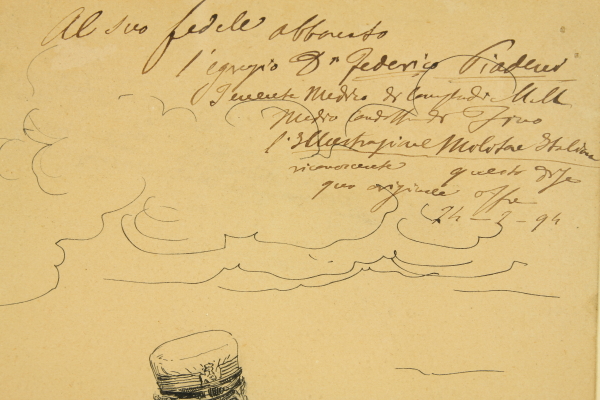 Al suo fedele abbonato
l'egregio Dr Federico
Tenente Medico di
Medico Condotto di
l'Illustrazione Militare Italiana
riconoscente questo
suo originale offre
24-2-94